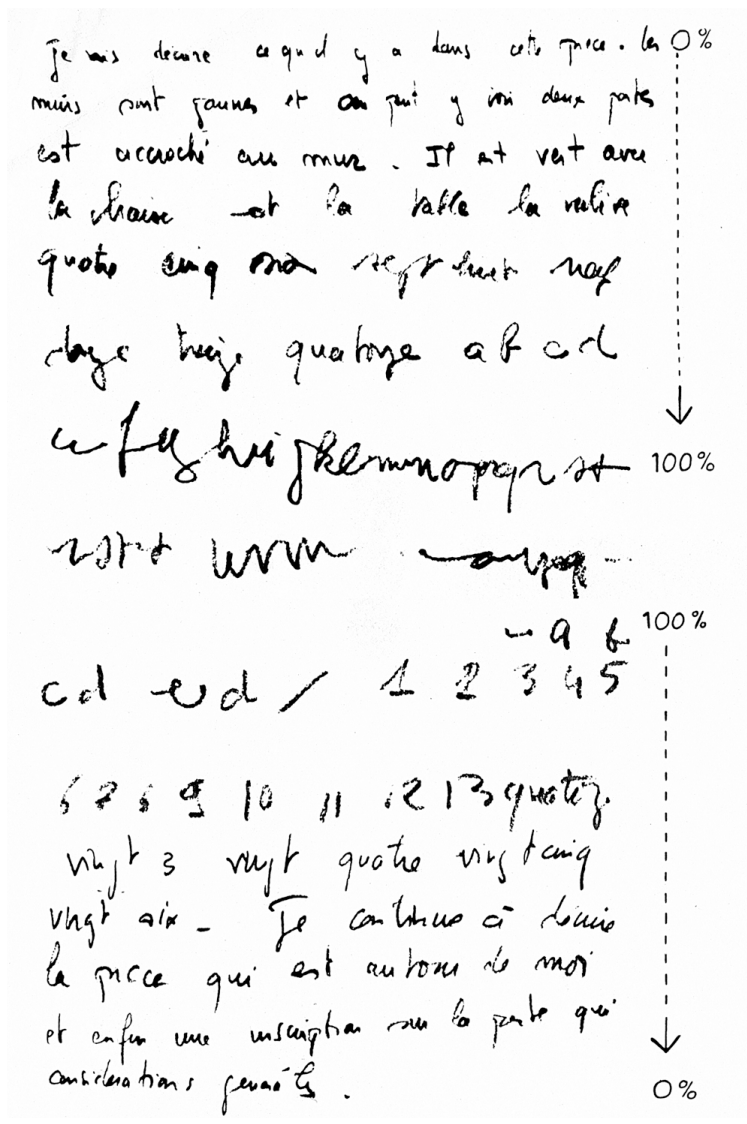 Je vais décrire ce qu'il y a dans cette pièce. les 0%
murs sont jaunes et on peut y voir deux portes
est accroché au mur. Il est vert avec
la chaise et la table la valise
quatre cinq six sept huit neuf
douze treize quatorze a b c d
e f g h i j k l m n o p q r s t 100%
r s t
- a b 100%
c d e d / 1 2 3 4 5
6 7 8 9 10 11 12 13 quatorze
vingt 3 vingt quatre vingt cinq
vingt six - Je continue à décrire
la pièce qui est autour de moi
et enfin une inscription sur la porte qui
considérations générales.
0%